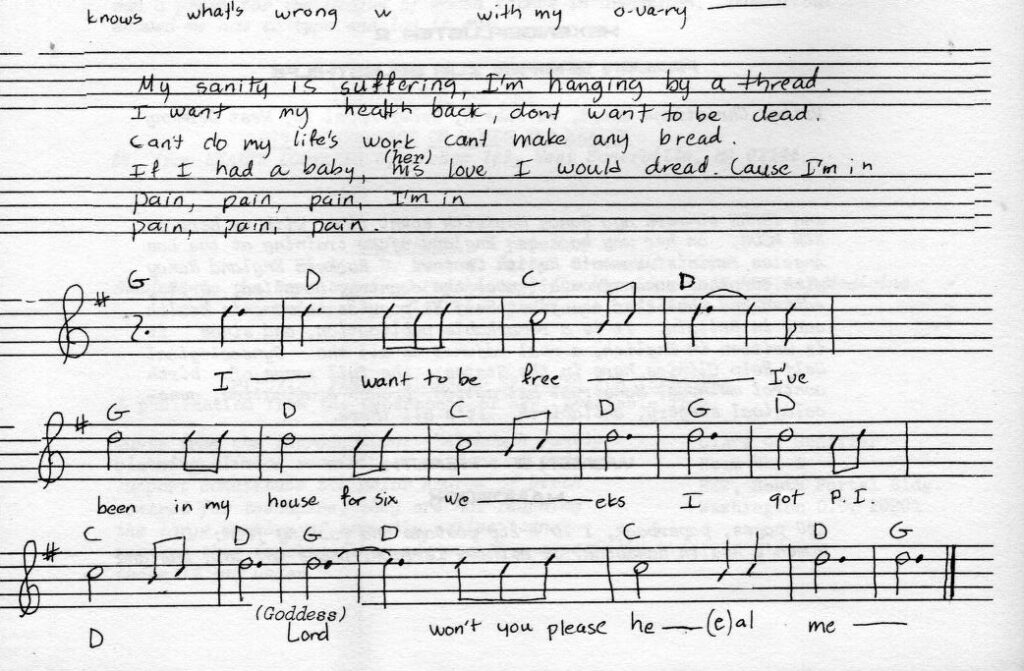 knows what's wrong w with my o-va-ry
My sanity is suffering, I'm hanging by a thread.
I want my health back, dont want to be dead.
Can't do my life's work cant make any bread.
(her)
If I had a baby, his love I would dread. Cause I'm in
pain, pain, pain, I'm in
pain, pain, pain.
G D C D
I want to be free I've
G D C D G D
been in my house for six we eks I got P.I.
C D G D C D G
(Goddess)
D Lord won't you please he (e)al me